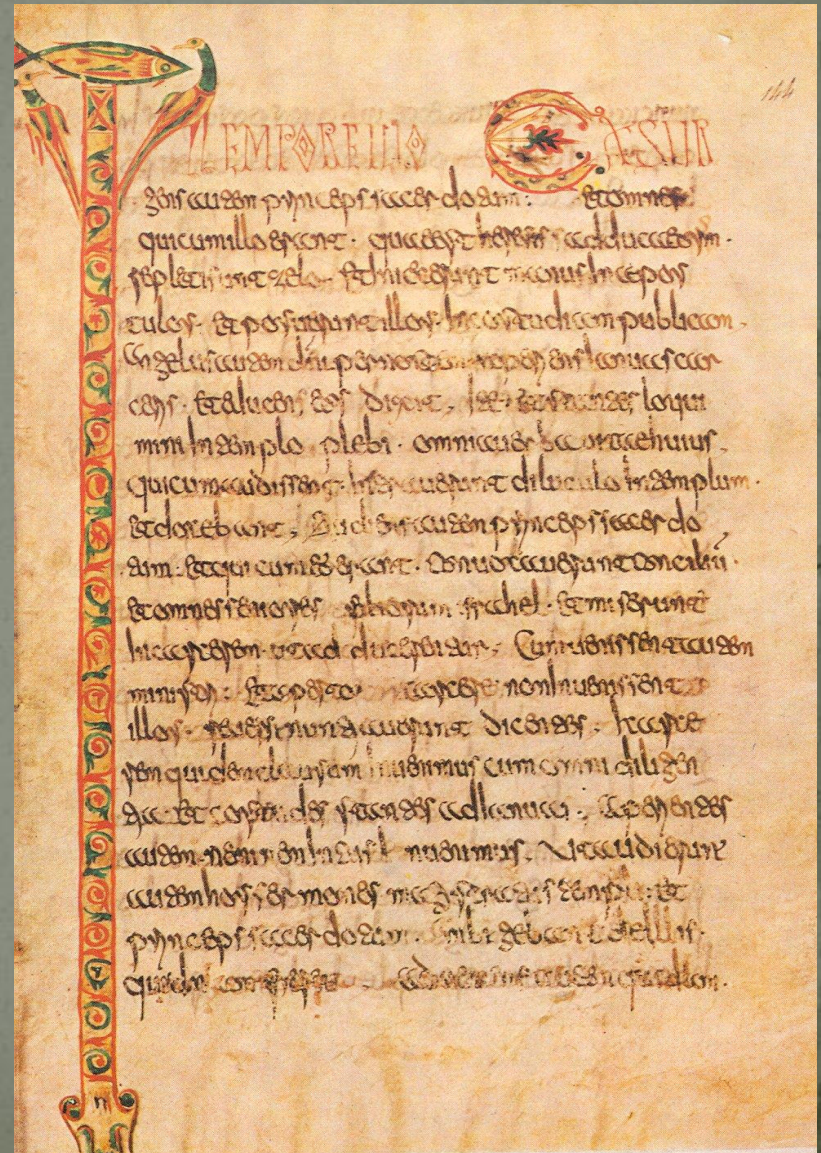 144
TEMPORE ILLO EXSUR
gens autem princeps sacerdotum : et omnes
qui cum illo erant . quae est heresis sadducaeorum .
repleti sunt zelo . et iniecerunt manus in apos
tulos . et posuerunt illos . in custudiam publicam .
Angelus autem dni per noctem aperiens ianuas carc
eris . et educens eos dixit . Ite et stantes loqui
mini in templo plebi . omnia verba vitae huius .
qui cum audissent . intraverunt diluculo in templum .
et docebant . autem princeps sacerdo
tum . et qui cum eo erant . Convocaverunt conciliu .
et omnes seniores filiorum israhel . et miserunt
in carcerem . ut adducerentur . Cum venissent autem
ministri . et aperto carcere non invenissent
illos . reversi nuntiaverunt dicentes . carce
rem quidem clausum invenimus cum omni diligen
tia . et custodes stantes ad ianuas . aperientes
autem neminem intus invenimus . Ut audierunt
autem hos sermones magistratus templi . et
princeps sacerdotum . ambigebant de illis .
autem quidam .